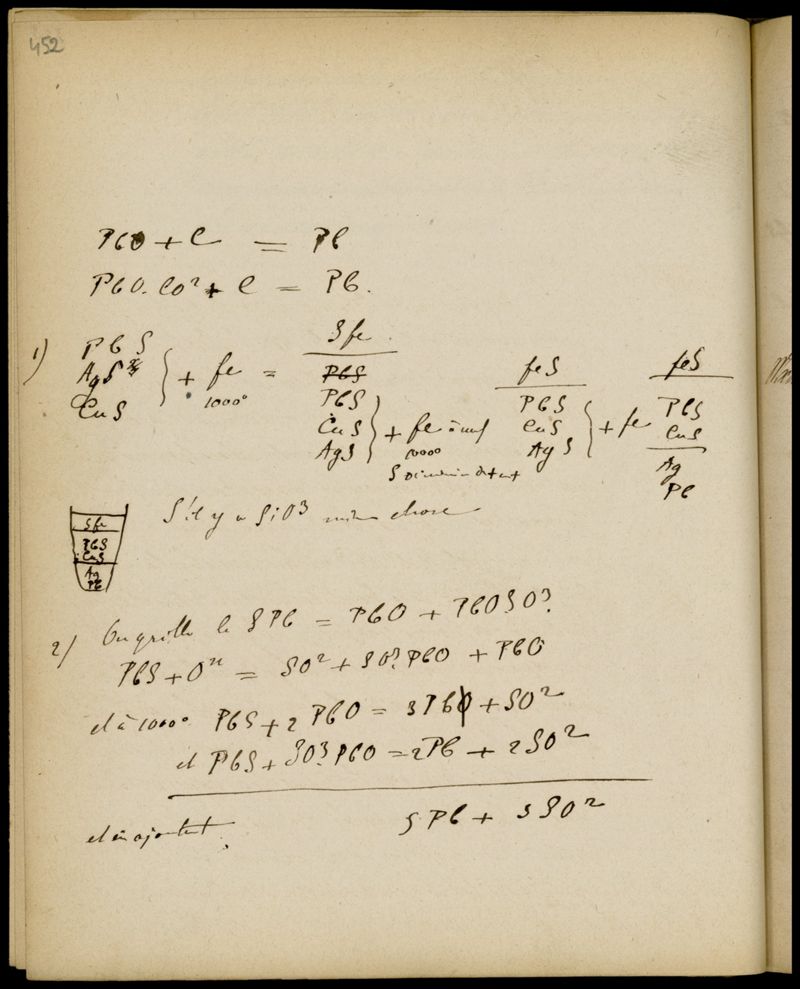 452
PbO + C = Pb
PbO.CO² + C = Pb.
1)
PbS
AgS
CuS
} + fe =
1000°
Sfe
PbS
PbS
CuS
AgS
} + fe
1000°
feS
PbS
CuS
AgS
} + fe
feS
PbS
CuS
Ag
Pb
S'il y a SiO³ même chose
Sfe
PbS
CuS
Ag
Pb
2) On grille le SPb = PbO + PbOSO³.
PbS + Oⁿ = SO² + SO³.PbO + PbO
et à 1000° PbS + 2 PbO = 3Pb + SO²
et PbS + SO³.PbO = 2Pb + 2SO²
et en ajoutant. 5Pb + 3SO²